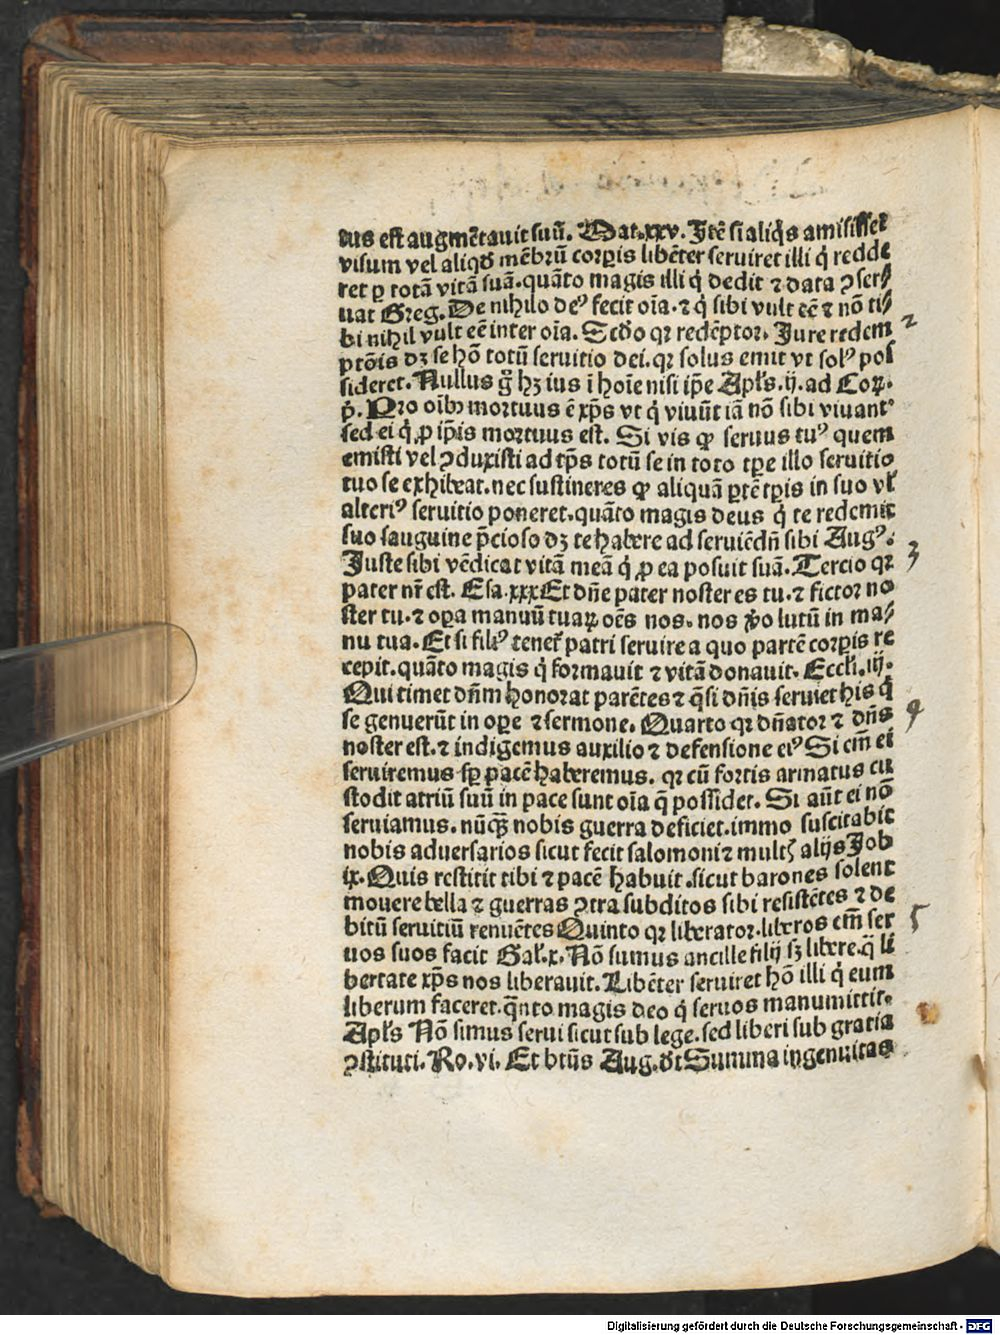 tus est augmētauit suū. Mat. xxv. Itē si aliq̄s amisisset
visum vel aliqđ mēbrū corꝑis libēter seruiret illi q̇ redde
ret ꝑ totā vitā suā. quāto magis illi q̇ dedit ⁊ data ꝯser⸗
uat Greg. De nihilo deꝰ fecit oīa. ⁊ q̇ sibi vult eē ⁊ nō ti⸗
bi nihil vult eē inter oīa. Scďo qꝛ redēptor. Iure redem
2
ptōis dꝫ se hō totū seruitio dei. qꝛ solus emit vt solꝰ pos
sideret. Nullus g̊ hꝫ ius ī hoīe nisi ip̄e Apl̄s. ij. ad Coꝝ.
ꝟ. Pro oībꝰ mortuus ē xp̄s vt q̇ viuūt iā nō sibi viuant
sed ei q̇ ꝓ ip̄is mortuus est. Si vis ꝙ seruus tuꝰ quem
emisti vel ꝯduxisti ad tp̄s totū se in toto tꝑe illo seruitio
tuo se exhibeat. nec sustineres ꝙ aliquā ꝑtē tꝑis in suo vl̄
alteriꝰ seruitio poneret. quāto magis deus q̇ te redemit
suo sanguine p̄cioso dꝫ te habere ad seruiēdū sibi Augꝰ.
Iuste sibi vēdicat vitā meā q̇ ꝓ ea posuit suā. Tercio qꝛ
3
pater nr̄ est. Esa. xxx Et dn̄e pater noster es tu. ⁊ fictor no
ster tu. ⁊ oꝑa manuū tuaꝝ oēs nos. nos ꝟo lutū in ma⸗
nu tua. Et si filiꝰ tenet̄ patri seruire a quo partē corꝑis re
cepit. quāto magis q̇ formauit ⁊ vitā donauit. Eccl̄i. iij.
Qui timet dn̄m honorat parētes ⁊ q̄si dn̄is seruiet his q̇
se genuerūt in oꝑe ⁊ sermone. Quarto qꝛ dn̄ator ⁊ dn̄s
4
noster est. ⁊ indigemus auxilio ⁊ defensione eiꝰ Si em̄ ei
seruiremus sꝑ pacē haberemus. qꝛ cū fortis armatus cu
stodit atriū suū in pace sunt oīa q̄ possidet. Si aūt ei nō
seruiamus. nūqꝫ nobis guerra deficiet. immo suscitabit
nobis aduersarios sicut fecit salomoni ⁊ multꝭ alijs Iob
ix. Quis restitit tibi ⁊ pacē habuit. sicut barones solent
mouere bella ⁊ guerras ꝯtra subditos sibi resistētes ⁊ de
bitū seruitiū renuētes Quinto qꝛ liberator. liberos em̄ ser
5
uos suos facit Gal̄. x. Nō sumus ancille filij sꝫ libere. q̄ li
bertate xp̄s nos liberauit. Libēter seruiret hō illi q̇ eum
liberum faceret. q̄nto magis deo q̇ seruos manumittit.
Apl̄s Nō simus serui sicut sub lege. sed liberi sub gratia
ꝯstituti. Ro. vi. Et btūs Aug. đt Summa ingenuitas
Digitalisierung gefördert durch die Deutsche Forschungsgemeinschaft - DFG